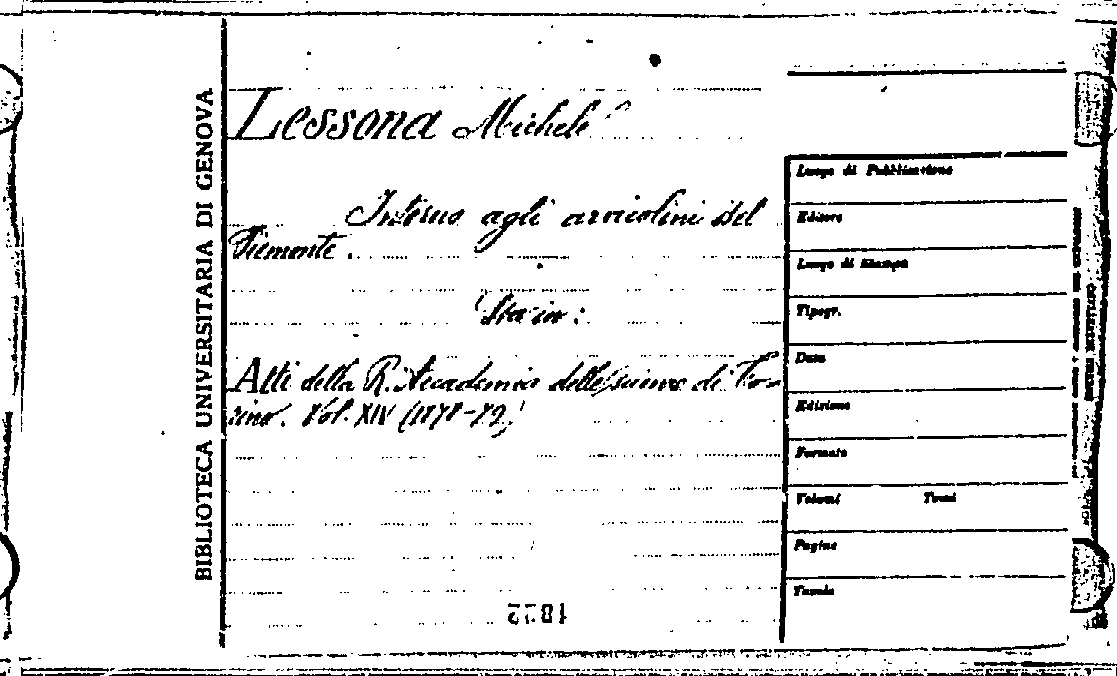 BIBLIOTECA UNIVERSITARIA DI GENOVA
Lessona Michele
Intorno agli arvicolini del
Piemonte.
Sta in:
Atti della R. Accademia delle scienze di To-
rino. Vol. XIV (1878-79)
1822
Luogo di Pubblicazione
Editore
Luogo di Stampa
Tipogr.
Data
Edizione
Formato
Volumi Tomi
Pagine
Tavole